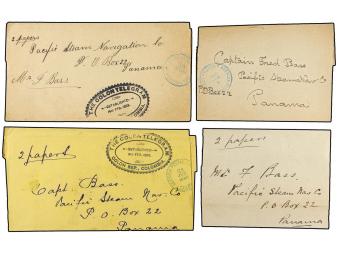 2 papers
Pacific Steam Navigation Co
P. O Box 22
Panama.
Mr F Bass
THE COLON TELEGRAM
ESTABLISHED
Captain Fred Bass
Pacific Steam Nav Co
P.O Box 22
Panama
THE COLON TELEGRAM
ESTABLISHED
COLON REP. COLOMBIA
2 papers
Capt. Bass.
Pacific Steam Nav. Co
P. O Box 22
Panama
2 papers
Mr F Bass,
Pacific Steam Nav Co
P. O Box 22
Panama